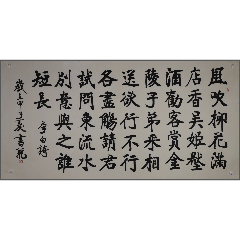 風吹柳花滿
店香吳姬壓
酒勸客賞金
陵子弟來相
送欲行不行
各盡觴請君
試問東流水
別意與之誰
短長
李白詩